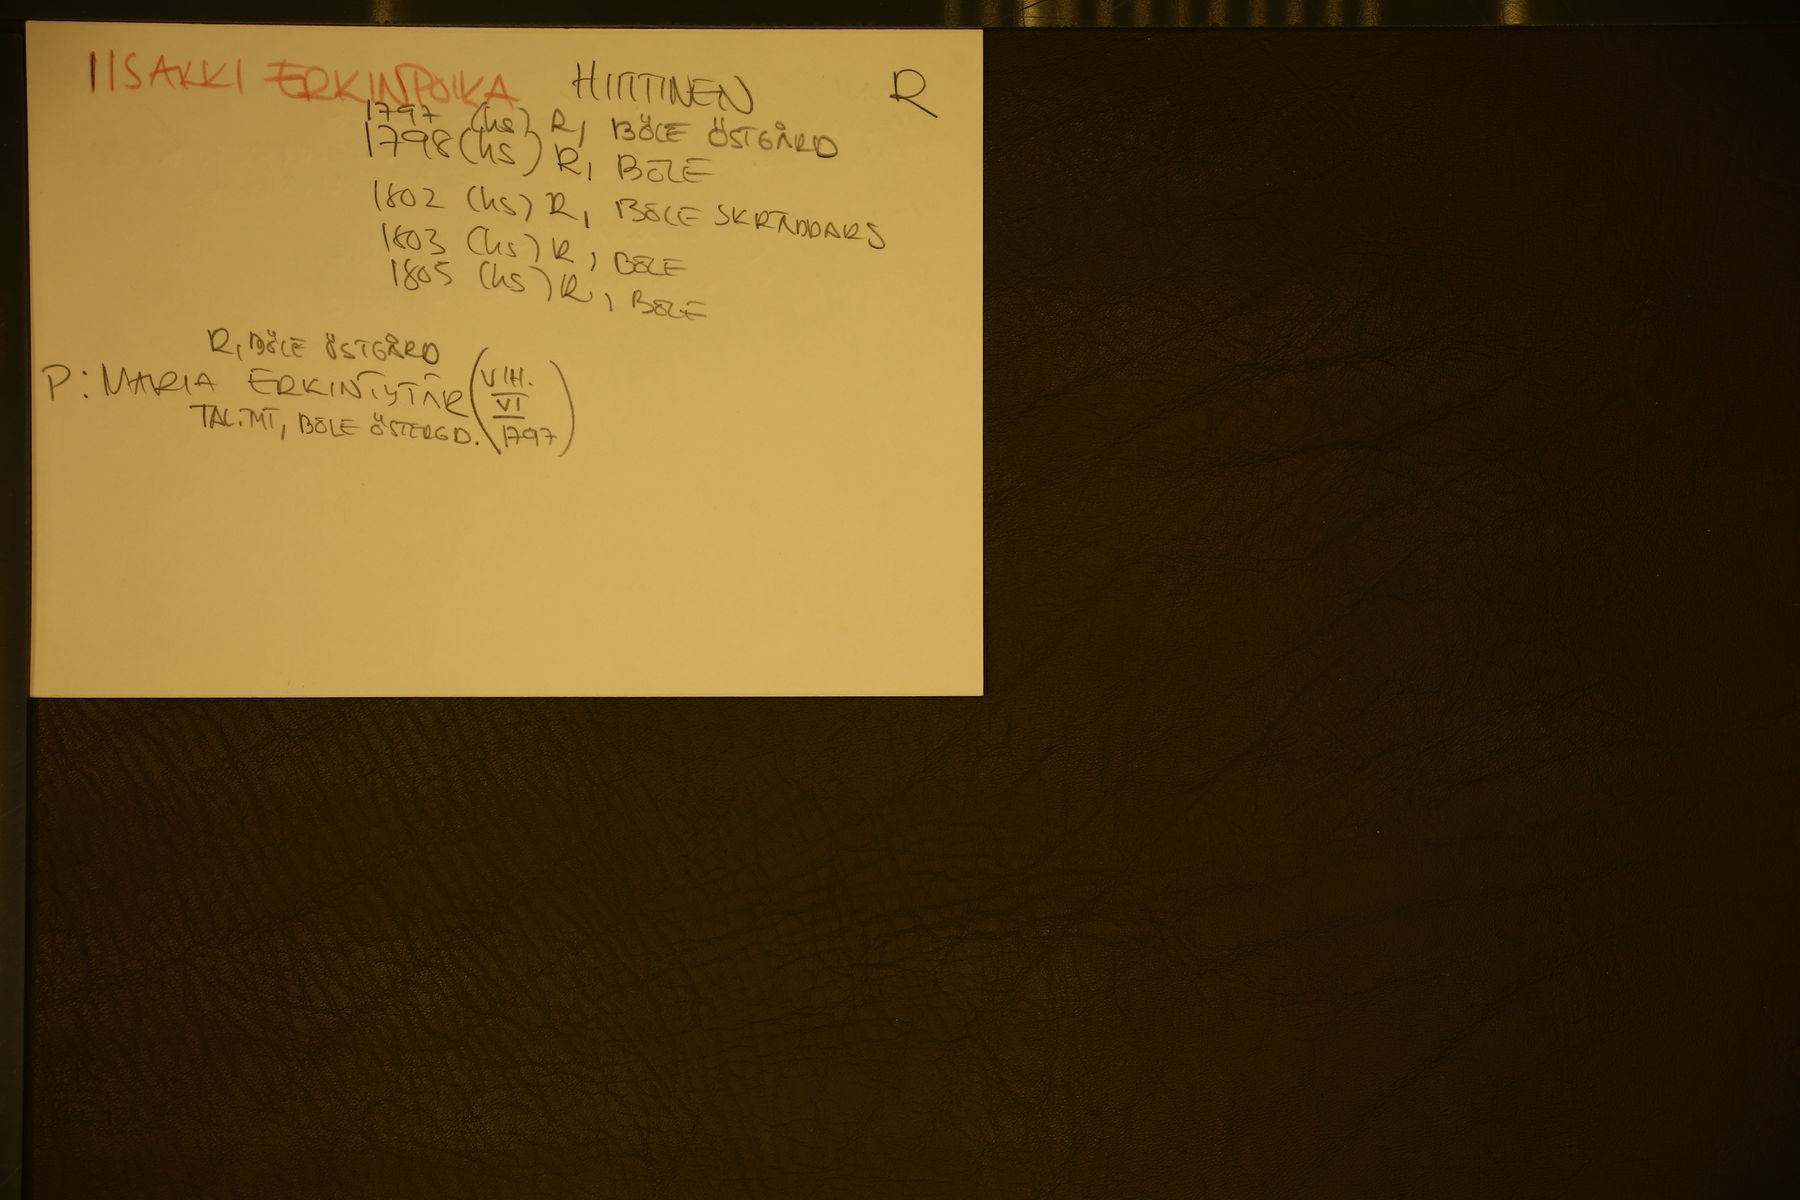 IISAKKI ERKINPOIKA HIITTINEN R
1797 (hs) R, BÖLE ÖSTGÅRD
1798 (hs) R, BÖLE
1802 (hs) R, BÖLE SKRÄDDARS
1803 (hs) R, BÖLE
1805 (hs) R, BÖLE
R, BÖLE ÖSTGÅRD
P: MARIA ERKINTYTÄR (VIH. VI 1797)
TAL.TYT, BÖLE ÖSTERGD.